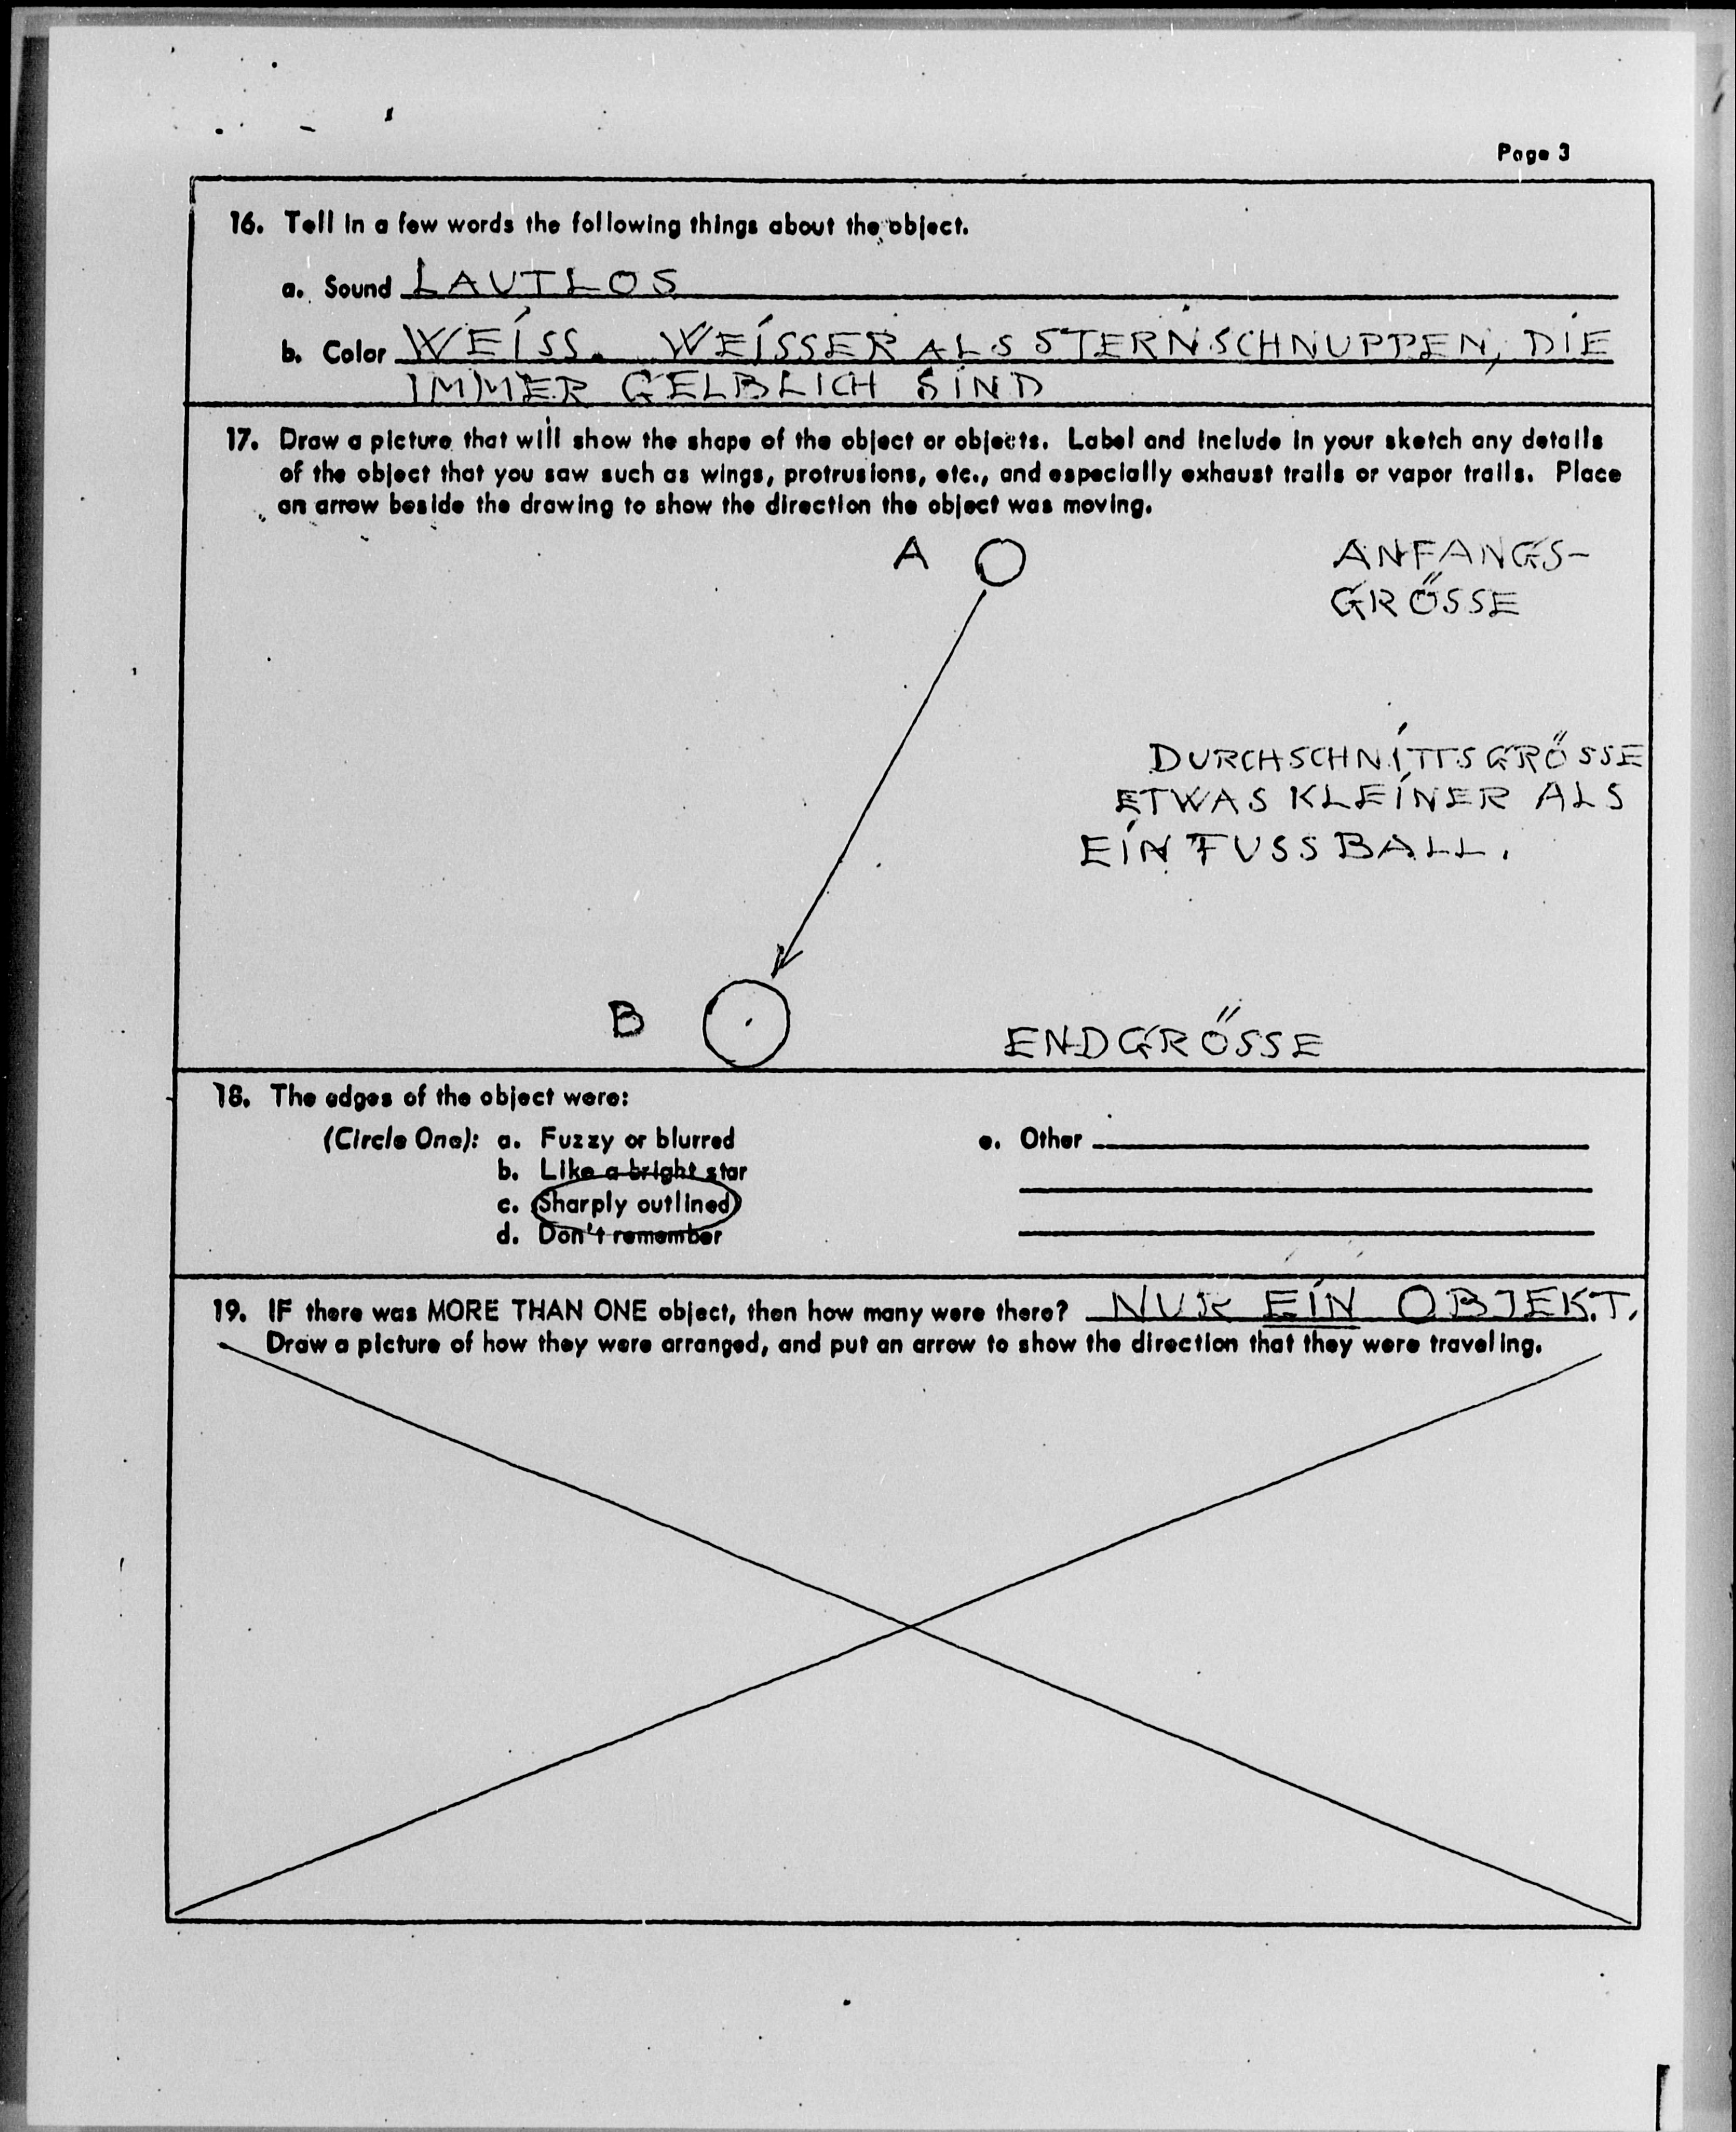 Page 3
16. Tell in a few words the following things about the object.
a. Sound LAUTLOS
b. Color WEISS. WEISSER ALS STERNSCHNUPPEN, DIE
IMMER GELBLICH SIND
17. Draw a picture that will show the shape of the object or objects. Label and include in your sketch any details
of the object that you saw such as wings, protrusions, etc., and especially exhaust trails or vapor trails. Place
an arrow beside the drawing to show the direction the object was moving.
A
ANFANGS-
GRÖSSE
DURCHSCHNITTSGRÖSSE
ETWAS KLEINER ALS
EIN FUSSBALL.
B
ENDGRÖSSE
18. The edges of the object were:
(Circle One): a. Fuzzy or blurred
b. Like a bright star
c. Sharply outlined
d. Don't remember
e. Other
19. IF there was MORE THAN ONE object, then how many were there? NUR EIN OBJEKT.
Draw a picture of how they were arranged, and put an arrow to show the direction that they were traveling.